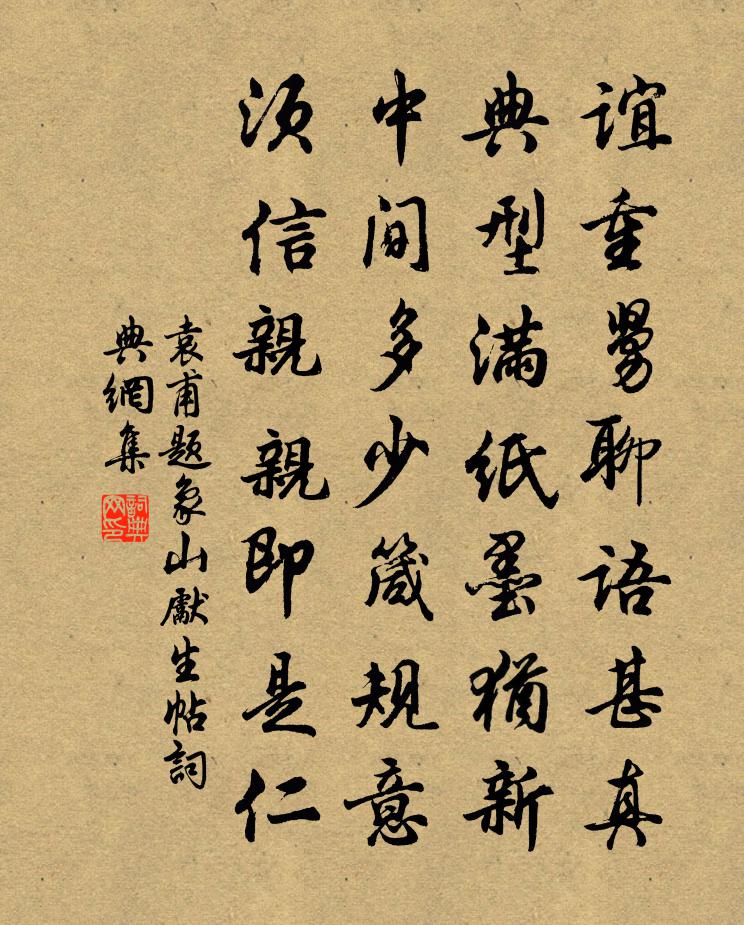 誼重舅聊語甚真
典型滿紙墨猶新
中間多少箴規意
須信親親即是仁
袁甫題象山獻生帖詞
典網集
詞典網印